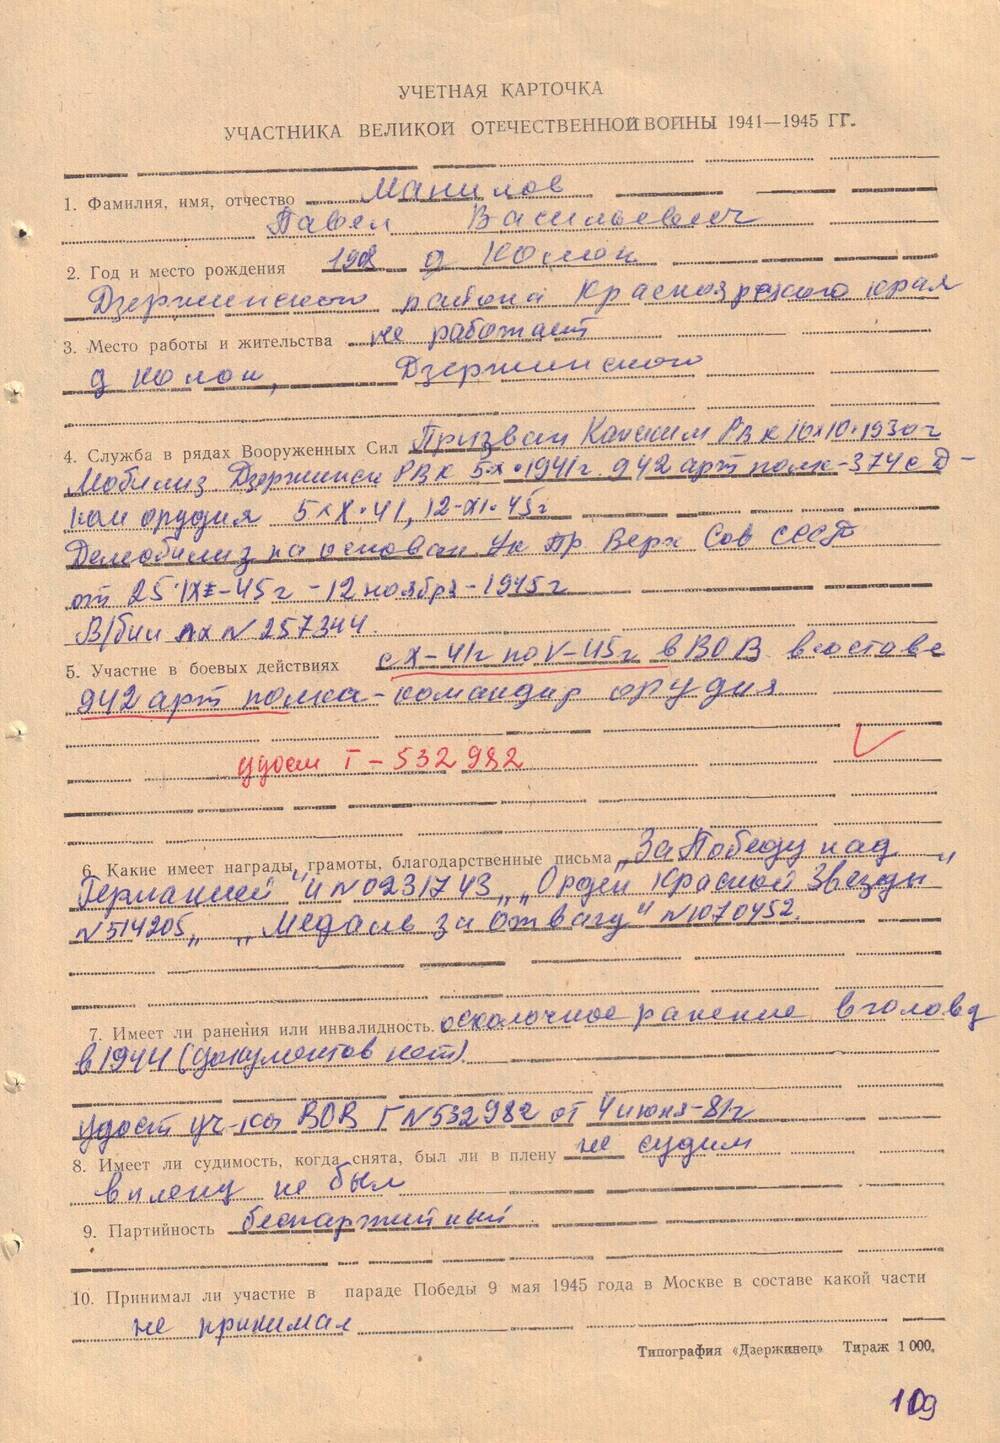 УЧЕТНАЯ КАРТОЧКА
УЧАСТНИКА ВЕЛИКОЙ ОТЕЧЕСТВЕННОЙ ВОЙНЫ 1941—1945 ГГ.
1. Фамилия, имя, отчество Манилов
Павел Васильевич
2. Год и место рождения д Колон
Дзержинского района Красноярского края
3. Место работы и жительства не работает
д Колон, Дзержинского
4. Служба в рядах Вооруженных Сил Призван Канским РВК 10.10.1930г
Мобилиз Дзержинск РВК 5.X.1941г. 942 арт полк-374 с Д-
ком орудия 5.X.41, 12-XI.45г
Демобилиз на основан Ук Пр Верх Сов СССР
от 25.IX-45г-12 ноября-1945г
В/бил № 257344.
5. Участие в боевых действиях с X-41г по V-45г в ВОВ в составе
942 арт полка-командир орудия
удост Г-532982
6. Какие имеет награды, грамоты, благодарственные письма „За Победу над
Германией" № 0231743, „Орден Красной Звезды"
№514205, „Медаль за Отвагу" №1070452.
7. Имеет ли ранения или инвалидность. осколочное ранение в голову
в 1944 (документов нет).
удост уч-ка ВОВ Г №532982 от 4 июня-81г
8. Имеет ли судимость, когда снята, был ли в плену не судим
в плену не был
9. Партийность беспартийный
10. Принимал ли участие в параде Победы 9 мая 1945 года в Москве в составе какой части
не принимал
Типография «Дзержинец» Тираж 1 000.
109